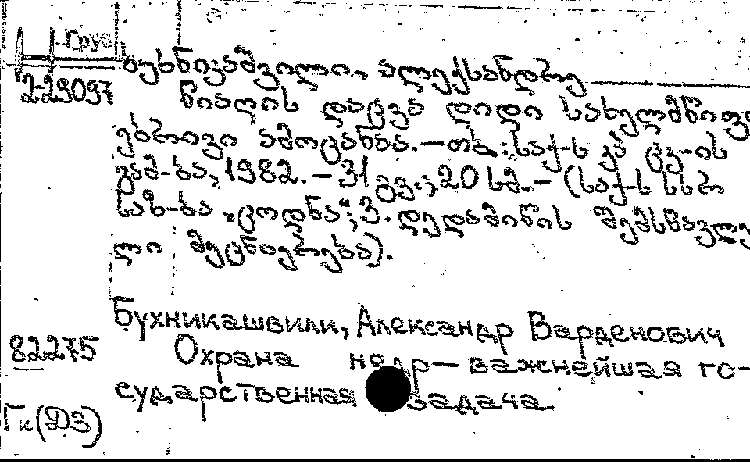 Груз
ბუხნიკაშვილი, ალექსანდრე
2-29097
წიაღის დაცვა დიდი სახელმწიფო
ებრივი ამოცანაა. — თბ.: საქ-ს კპ ცკ-ის
გამ-ბა, 1982. — 31 გვ.; 20 სმ. — (საქ-ს სსრ
საზ-ბა „ცოდნა“; 3. დედამიწის შემსწავლე
ლი მეცნიერება).
Бухникашвили, Александр Варденович
82275
Охрана недр — важнейшая го-
сударственная задача.
Гк(ДЗ)